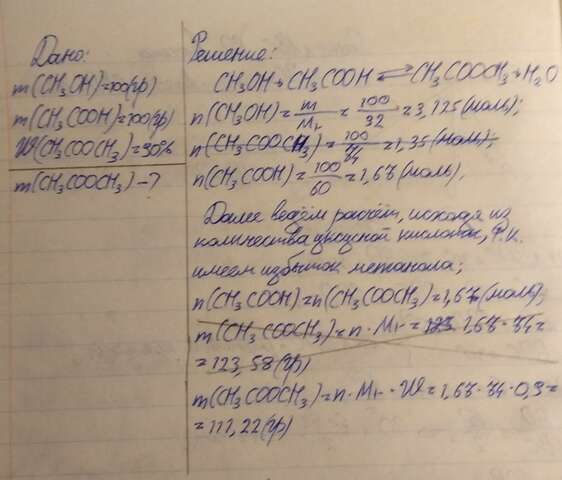 Дано:
m(CH₃OH)=100(гр)
m(CH₃COOH)=100(гр)
W(CH₃COOCH₃)=90%
m(CH₃COOCH₃)-?
Решение:
CH₃OH+CH₃COOH⇄CH₃COOCH₃+H₂O
n(CH₃OH)=m/Mr=100/32=3,125(моль);
n(CH₃COOCH₃)=100/74=1,35(моль);
n(CH₃COOH)=100/60=1,67(моль).
Далее ведём расчёт, исходя из
количества уксусной кислоты, т.к.
имеем избыток метанола;
n(CH₃COOH)=n(CH₃COOCH₃)=1,67(моль);
m(CH₃COOCH₃)=n·Mr=123 1,67·74=
=123,58(гр)
m(CH₃COOCH₃)=n·Mr·W=1,67·74·0,9=
=111,22(гр)